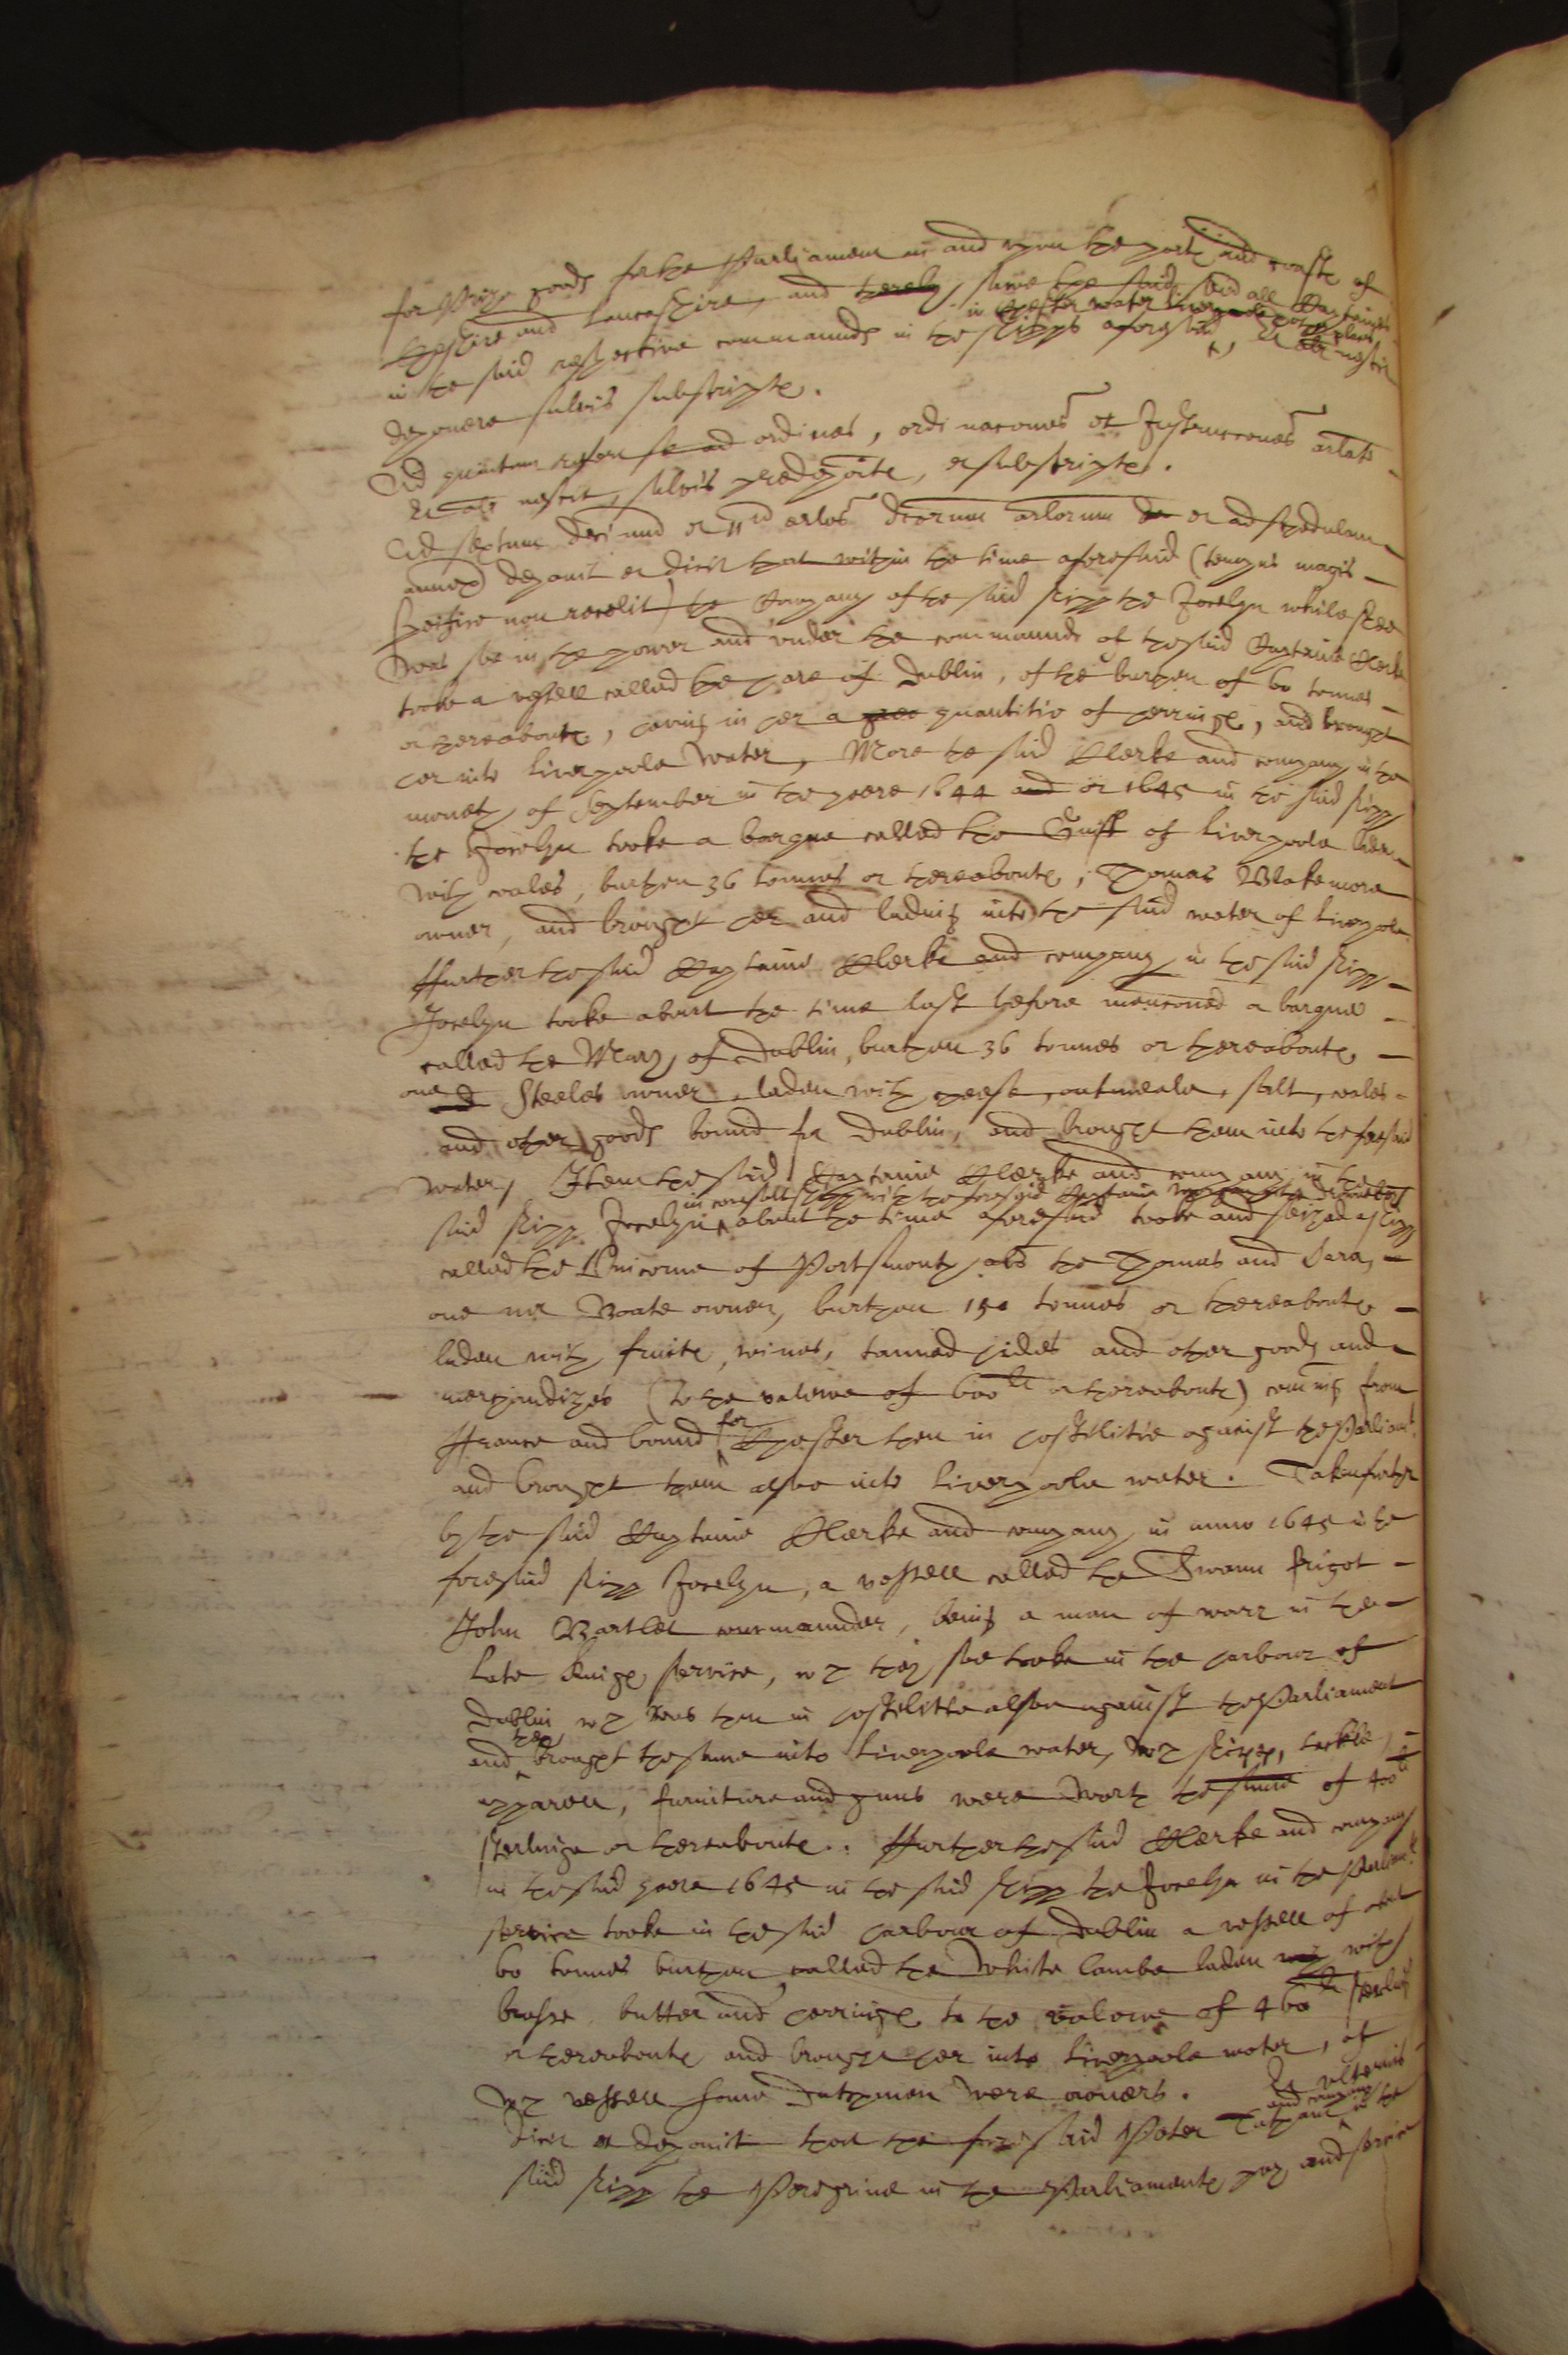 for Prize goods for the Parliament in and upon the ports and coasts of
Cheshire and Lancashire, and thereby since the said and all Captaines
in Chester water Liverpoole places
in the said respective commaunds in the shipps aforesaid, Et alr nescit
deponere salvis subscriptis.
Ad quintum refert se ad ordines, ordinacones et Instruccones arlats
Et alr nescit, salvis predepoitis, et subscriptis.
Ad septum decimum et 11um arlos dcorum arlorum de et ad schedulam
annexd deponit et dicit that within the time aforesaid (tempus magis
specifice non recolit) the Company of the said shipp the Jocelyn while shee
was soe in the power and under the commaunds of the said Captaine Clerke
tooke a vessell called the hare of Dublin, of the burthen of 60 tonnes
or thereabouts, having in her a quantitie of herrings, and brought
her into Liverpoole water, More the said Clerke and company in the
moneth of September in the yeere 1644 and or 1645 in the said shipp
the Jocelyn tooke a barque called the Guift of Liverpoole laden
with coales, burthen 36 tonnes or thereabouts, Thomas Blakemore
owner, and brought her and ladeing into the said water of Liverpoole
ffurther the said Captaine Clerke and company in the said shipp
Jocelyn tooke about the time last before menconed a barque
called the Mary of Dublin, burthen 36 tonnes or thereabouts,
one Steeles owner, laden with peese, oatmeale, salt, coales
and other goods bound for Dublin, and brought them into the foresaid
water, Item the said Captaine Clerke and company in the
in consortshipp with the foresaid Captaine
said shipp Jocelyn about the time aforesaid tooke and seized a shipp
called the Unicorne of Portsmouth als the Thomas and Sara,
one mr Boate owner, burthen 150 tonnes or thereabouts
laden with fruite, wines, tanned hides and other goods and
merchandizes (to the valewe of 600li or thereabouts) coming from
for
ffrance and bound Chester then in hostilitie against the Parliamt
and brought them alsoe into Liverpoole water. Taken further
by the said Captaine Clerke and company in anno 1645 in the
foresaid shipp Jocelyn, a vessell called the Swann frigot
John Bartlet commaunder, being a man of warr in the
late Kings service, wch they soe tooke in the harbour of
Dublin wch was then in hostilitie alsoe against the Parliament
they
and brought the same into Liverpoole water, wch shipp, tackle,
apparell, furniture and guns were worth the summe of 400li
sterlinge or thereabouts. ffurther the said Clerke and company
in the said yeere 1645 in the said shipp the Jocelyn in the Parliamts
service tooke in the said harbour of Dublin a vessell of about
60 tonnes burthen called the White Lambe laden with
butter and herrings to the valewe of 460li sterling
or thereabouts and brought her into Liverpoole water, of
wch vessell some Dutchmen were owners. Et ulterius
and company
dicit et deponit that the said Peter in the
said shipp the Peregrine in the Parliaments pay and service